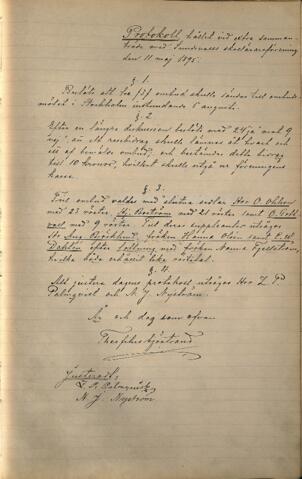 Protokoll hållet vid extra samman-
träde med Sundsvalls skollärareförening
den 11 maj 1895.
§ 1.
Beslöts att tre (3) ombud skulle sändas till ombuds-
mötet i Stockholm instundande 6 augusti.
§ 2.
Efter en längre diskussion beslöts med 24 ja mot 9
nej, att resebidrag skulle lämnas åt hvart och
ett af tre valda ombud, och bestämdes detta bidrag
till 10 kronor, hvilket skulle utgå ur föreningens
kassa.
§ 3.
Till ombud valdes med slutna sedlar Hrr O.
med 23 röster, Hj. Boström med 21 röster samt O.
med 9 röster. Till deras suppleanter utsågos
Hr Aug. Björklund, fröken Hanna Olsen samt E. W.
Dahlin efter lottning med fröken Nanna Fjellström,
hvilka båda erhållit lika röstetal.
§ 4.
Att justera dagens protokoll utsågos Hrr L. P.
Palmqvist och N. J. Nyström.
År och dag som ofvan
Justeradt,
L. P. Palmqvist
N. J. Nyström